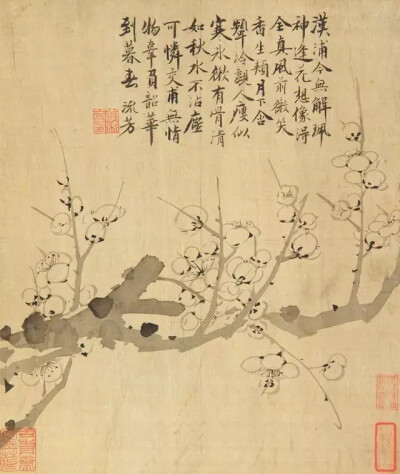 漢浦今無解珮
神逢花想像得
全真風前微笑
香生頰月下含
顰冷親人瘦似
寒冰嵌有骨清
如秋水不沾塵
可憐交甫無情
物辜負韶華
到暮春 流芳